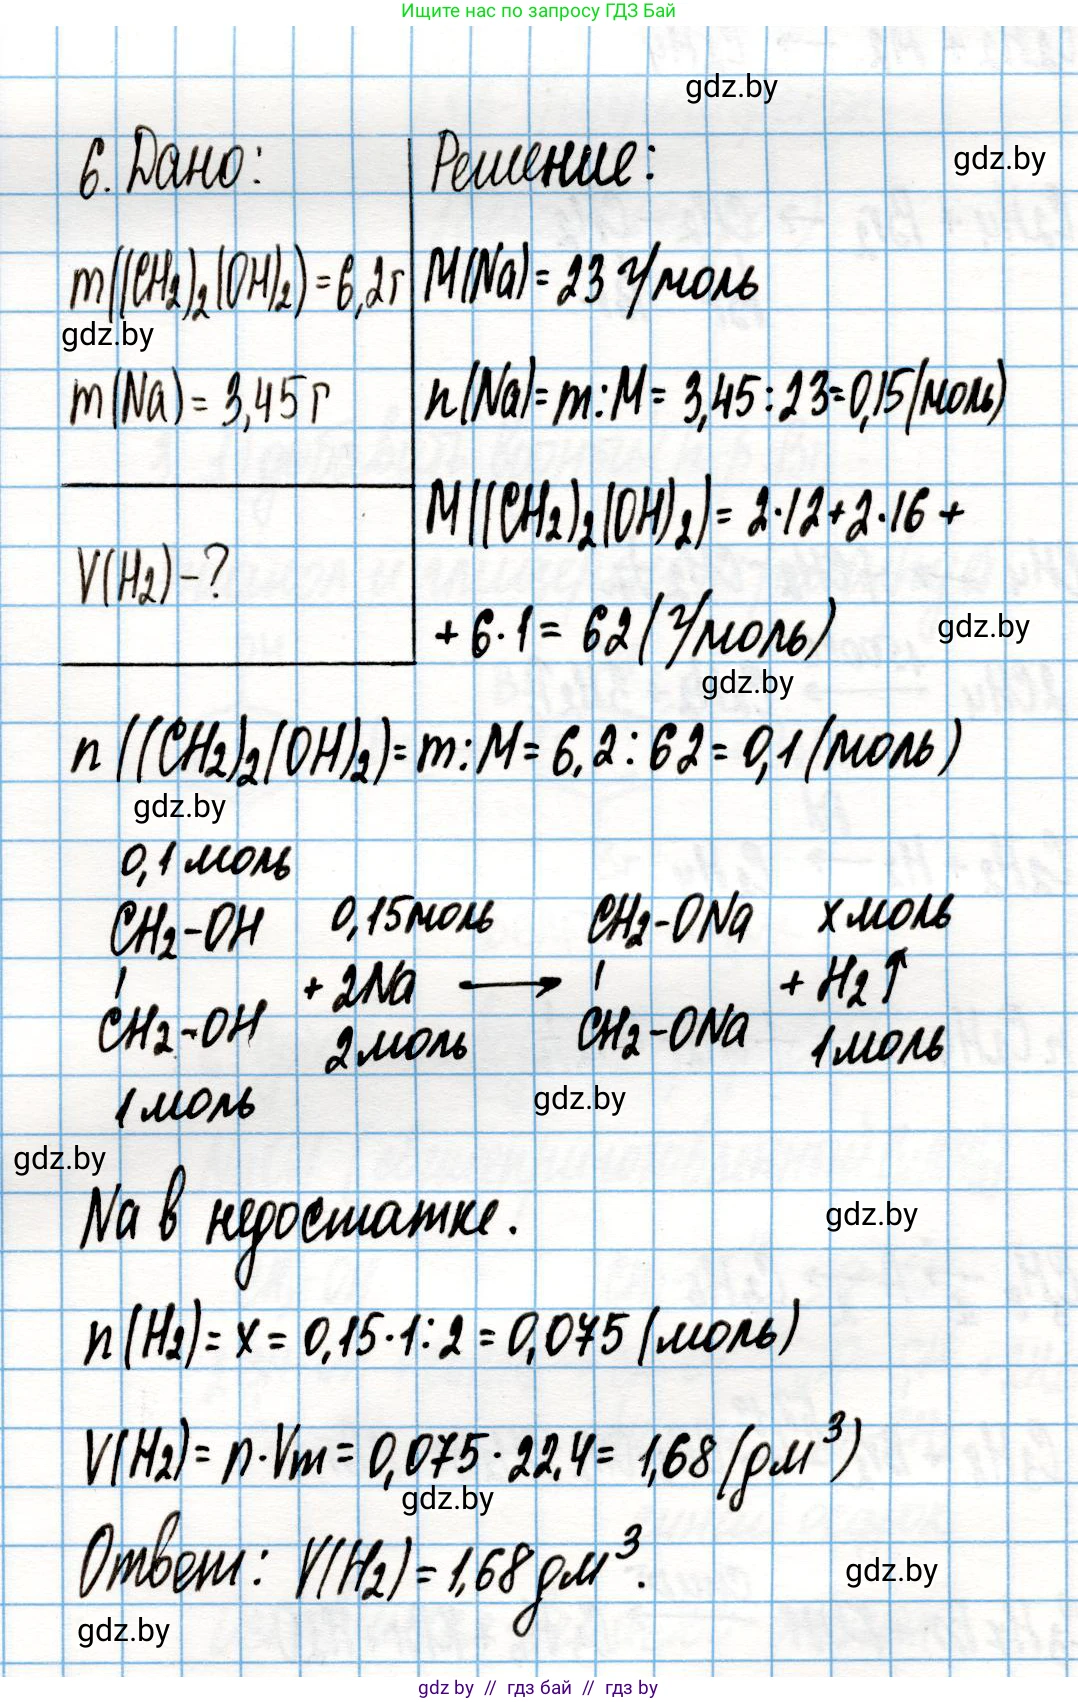 Ищите нас по запросу ГДЗ Бай
gdz.by
6. Дано:
Решение:
gdz.by
m((CH₂)₂(OH)₂) = 6,2г
M(Na) = 23 г/моль
gdz.by
m(Na) = 3,45 г
n(Na) = m : M = 3,45 : 23 = 0,15 (моль)
M((CH₂)₂(OH)₂) = 2·12+2·16 +
V(H₂) - ?
+ 6·1 = 62 (г/моль)
gdz.by
gdz.by
n((CH₂)₂(OH)₂) = m : M = 6,2 : 62 = 0,1 (моль)
gdz.by
0,1 моль
CH₂-OH 0,15моль CH₂-ONa x моль
| + 2Na ⟶ | + H₂↑
CH₂-OH 2моль CH₂-ONa 1моль
1 моль
gdz.by
gdz.by
Na в недостатке.
gdz.by
n(H₂) = x = 0,15·1 : 2 = 0,075 (моль)
V(H₂) = n·Vm = 0,075·22,4 = 1,68 (дм³)
gdz.by
Ответ: V(H₂) = 1,68 дм³.
gdz.by
gdz.by
gdz by // гдз бай // гдз by